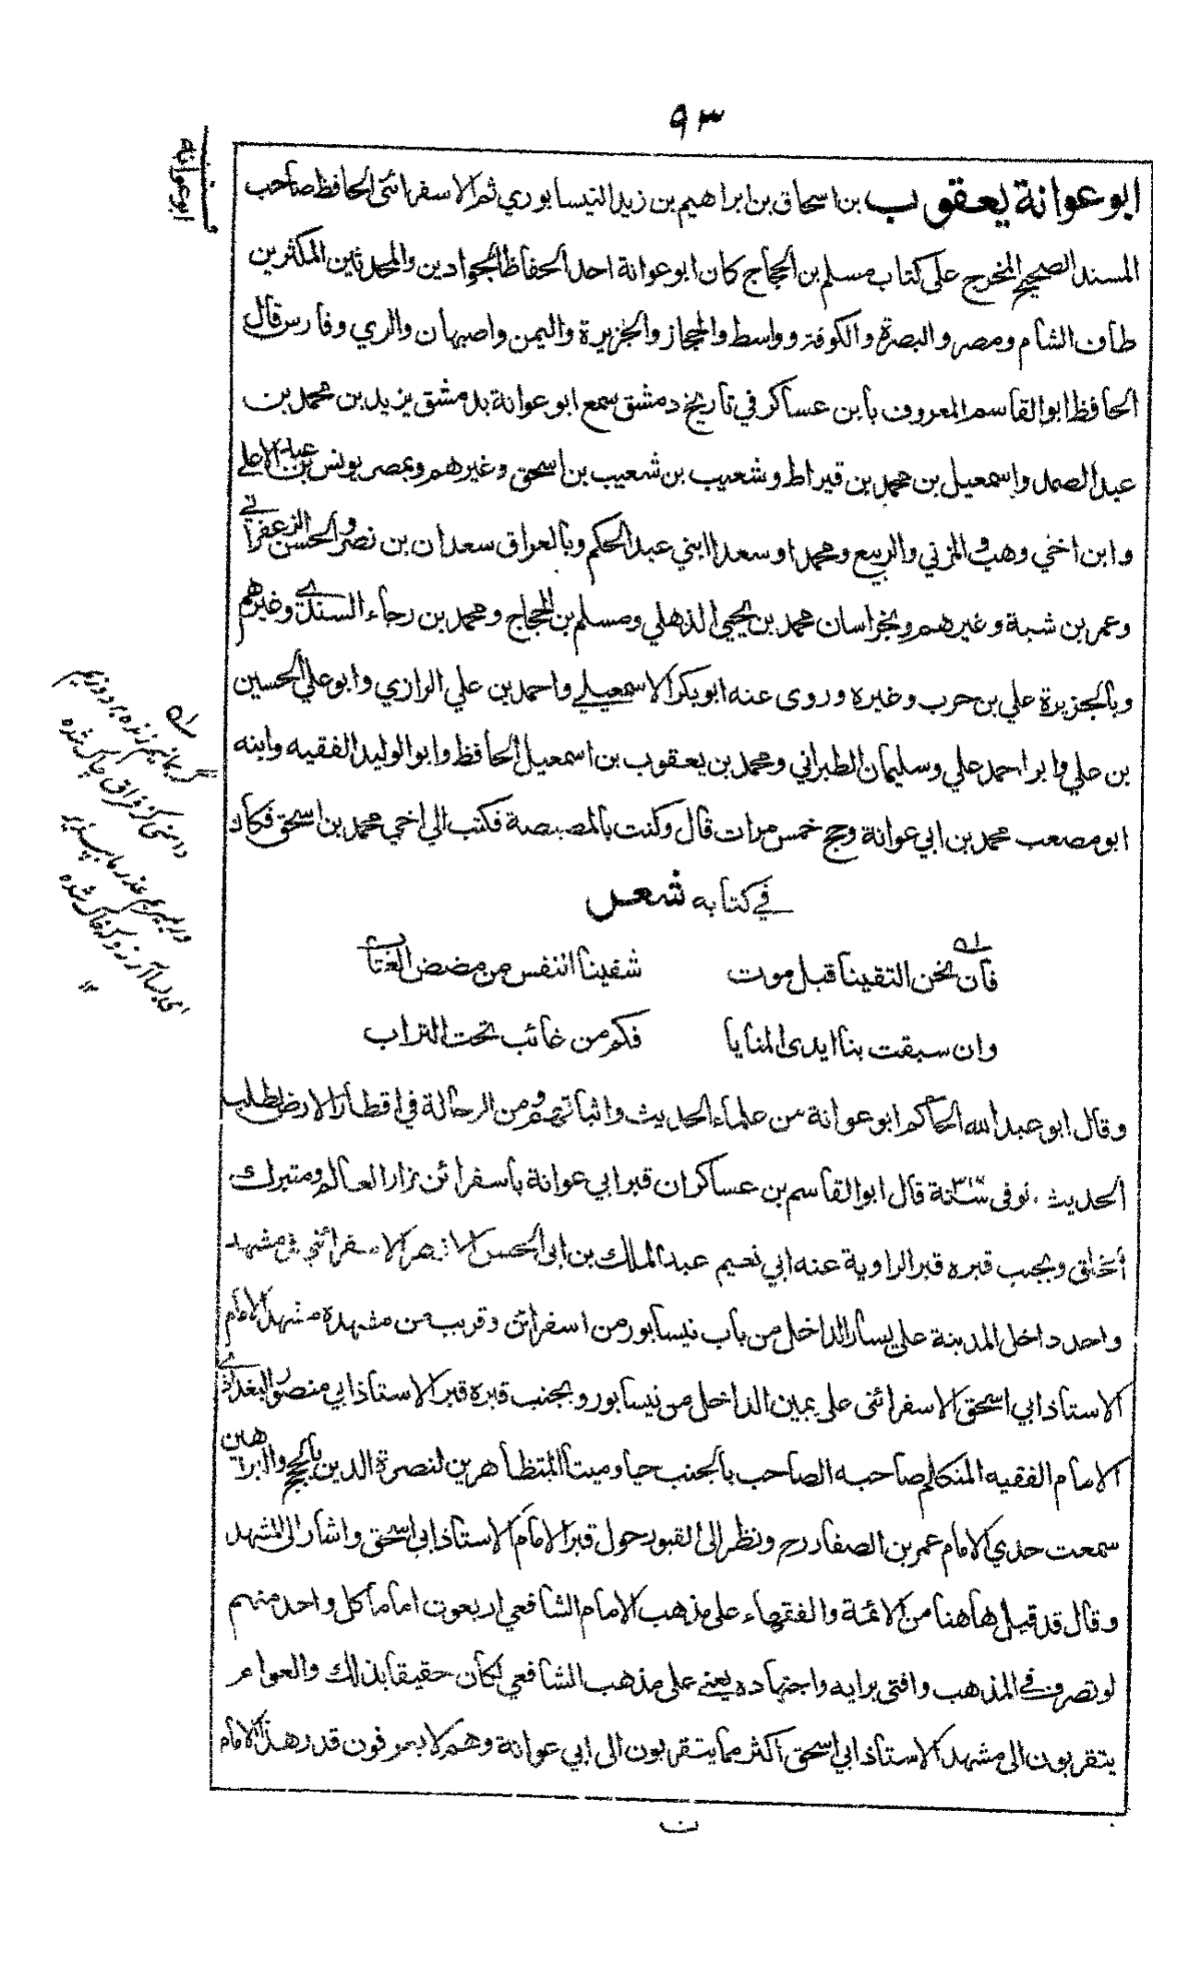 ٩٣
ابوعوانة
ابو عوانة يعقوب بن اسحاق بن ابراهيم بن زيد النيسابوري ثم الاسفرائنى الحافظ صاحب
المسند الصحيح المخرج على كتاب مسلم بن الحجاج كان ابو عوانة احد الحفاظ الجوادين والمحدثين المكثرين
طاف الشام ومصر والبصرة والكوفة وواسط والحجاز والجزيرة واليمن واصبهان والري وفارس قال
الحافظ ابو القاسم المعروف بابن عساكر في تاريخ دمشق سمع ابو عوانة بدمشق يزيد بن محمد بن
عبد الصمد واسمعيل بن محمد بن قيراط وشعيب بن شعيب بن اسحق وغيرهم وبمصر يونس بن عبد الاعلى
وابن اخي وهب والمزني والربيع ومحمدا وسعدا ابني عبد الحكم وبالعراق سعدان بن نصر والحسن الزعفراني
وعمر بن شبة وغيرهم وبخراسان محمد بن يحيى الذهلي ومسلم بن الحجاج ومحمد بن رجاء السندي وغيرهم
وبالجزيرة علي بن حرب وغيره وروى عنه ابو بكر الاسمعيلي واحمد بن علي الرازي وابو علي الحسين
بن علي وابو احمد علي وسليمان الطبراني ومحمد بن يعقوب بن اسمعيل الحافظ وابو الوليد الفقيه وابنه
ابو مصعب محمد بن ابي عوانة وحج خمس مرات قال وكنت بالمصيصة فكتب الي اخي محمد بن اسحق فكان
في كتابه شعر
فان نحن التقينا قبل موت شفينا النفس من مضض العتاب
وان سبقت بنا ايدى المنايا فكم من غائب تحت التراب
وقال ابو عبد الله الحاكم ابو عوانة من علماء الحديث واثباتهم ومن الرحالة في اقطار الارض لطلب
الحديث توفى سنة ٣١٦ قال ابو القاسم بن عساكر ان قبر ابي عوانة باسفرائن مزار العالم ومتبرك
الخلق وبجنب قبره قبر الراوية عنه ابي نعيم عبد الملك بن ابى الحسن الازهر الاسفرائنى في مشهد
واحد داخل المدينة على يسار الداخل من باب نيسابور من اسفرائن وقريب من مشهده مشهد الامام
الاستاذ ابي اسحق الاسفرائنى على يمين الداخل من نيسابور وبجنب قبره قبر الاستاذ ابي منصور البغدادي
الامام الفقيه المتكلم صاحبه الصاحب بالجنب حيا وميتا المتظاهرين لنصرة الدين بالحجج والبراهين
سمعت جدي الامام عمر بن الصفار رح ونظر الى القبور حول قبر الامام الاستاذ ابي اسحق واشار الى المشهد
وقال قد قيل هاهنا من الائمة والفقهاء على مذهب الامام الشافعي اربعون اماما كل واحد منهم
لو تصرف في المذهب وافتى برايه واجتهاده يعني على مذهب الشافعي لكان حقيقا بذلك والعوام
يتقربون الى مشهد الاستاذ ابي اسحق اكثر مما يتقربون الى ابي عوانة وهم لا يعرفون قدر هذا الامام
ن
گر بمانیم زنده بر دوزیم
دامنی کز فراق چاک شده
ور بمیریم عذر ما بپذیر
ای بسا آرزو که خاک شده